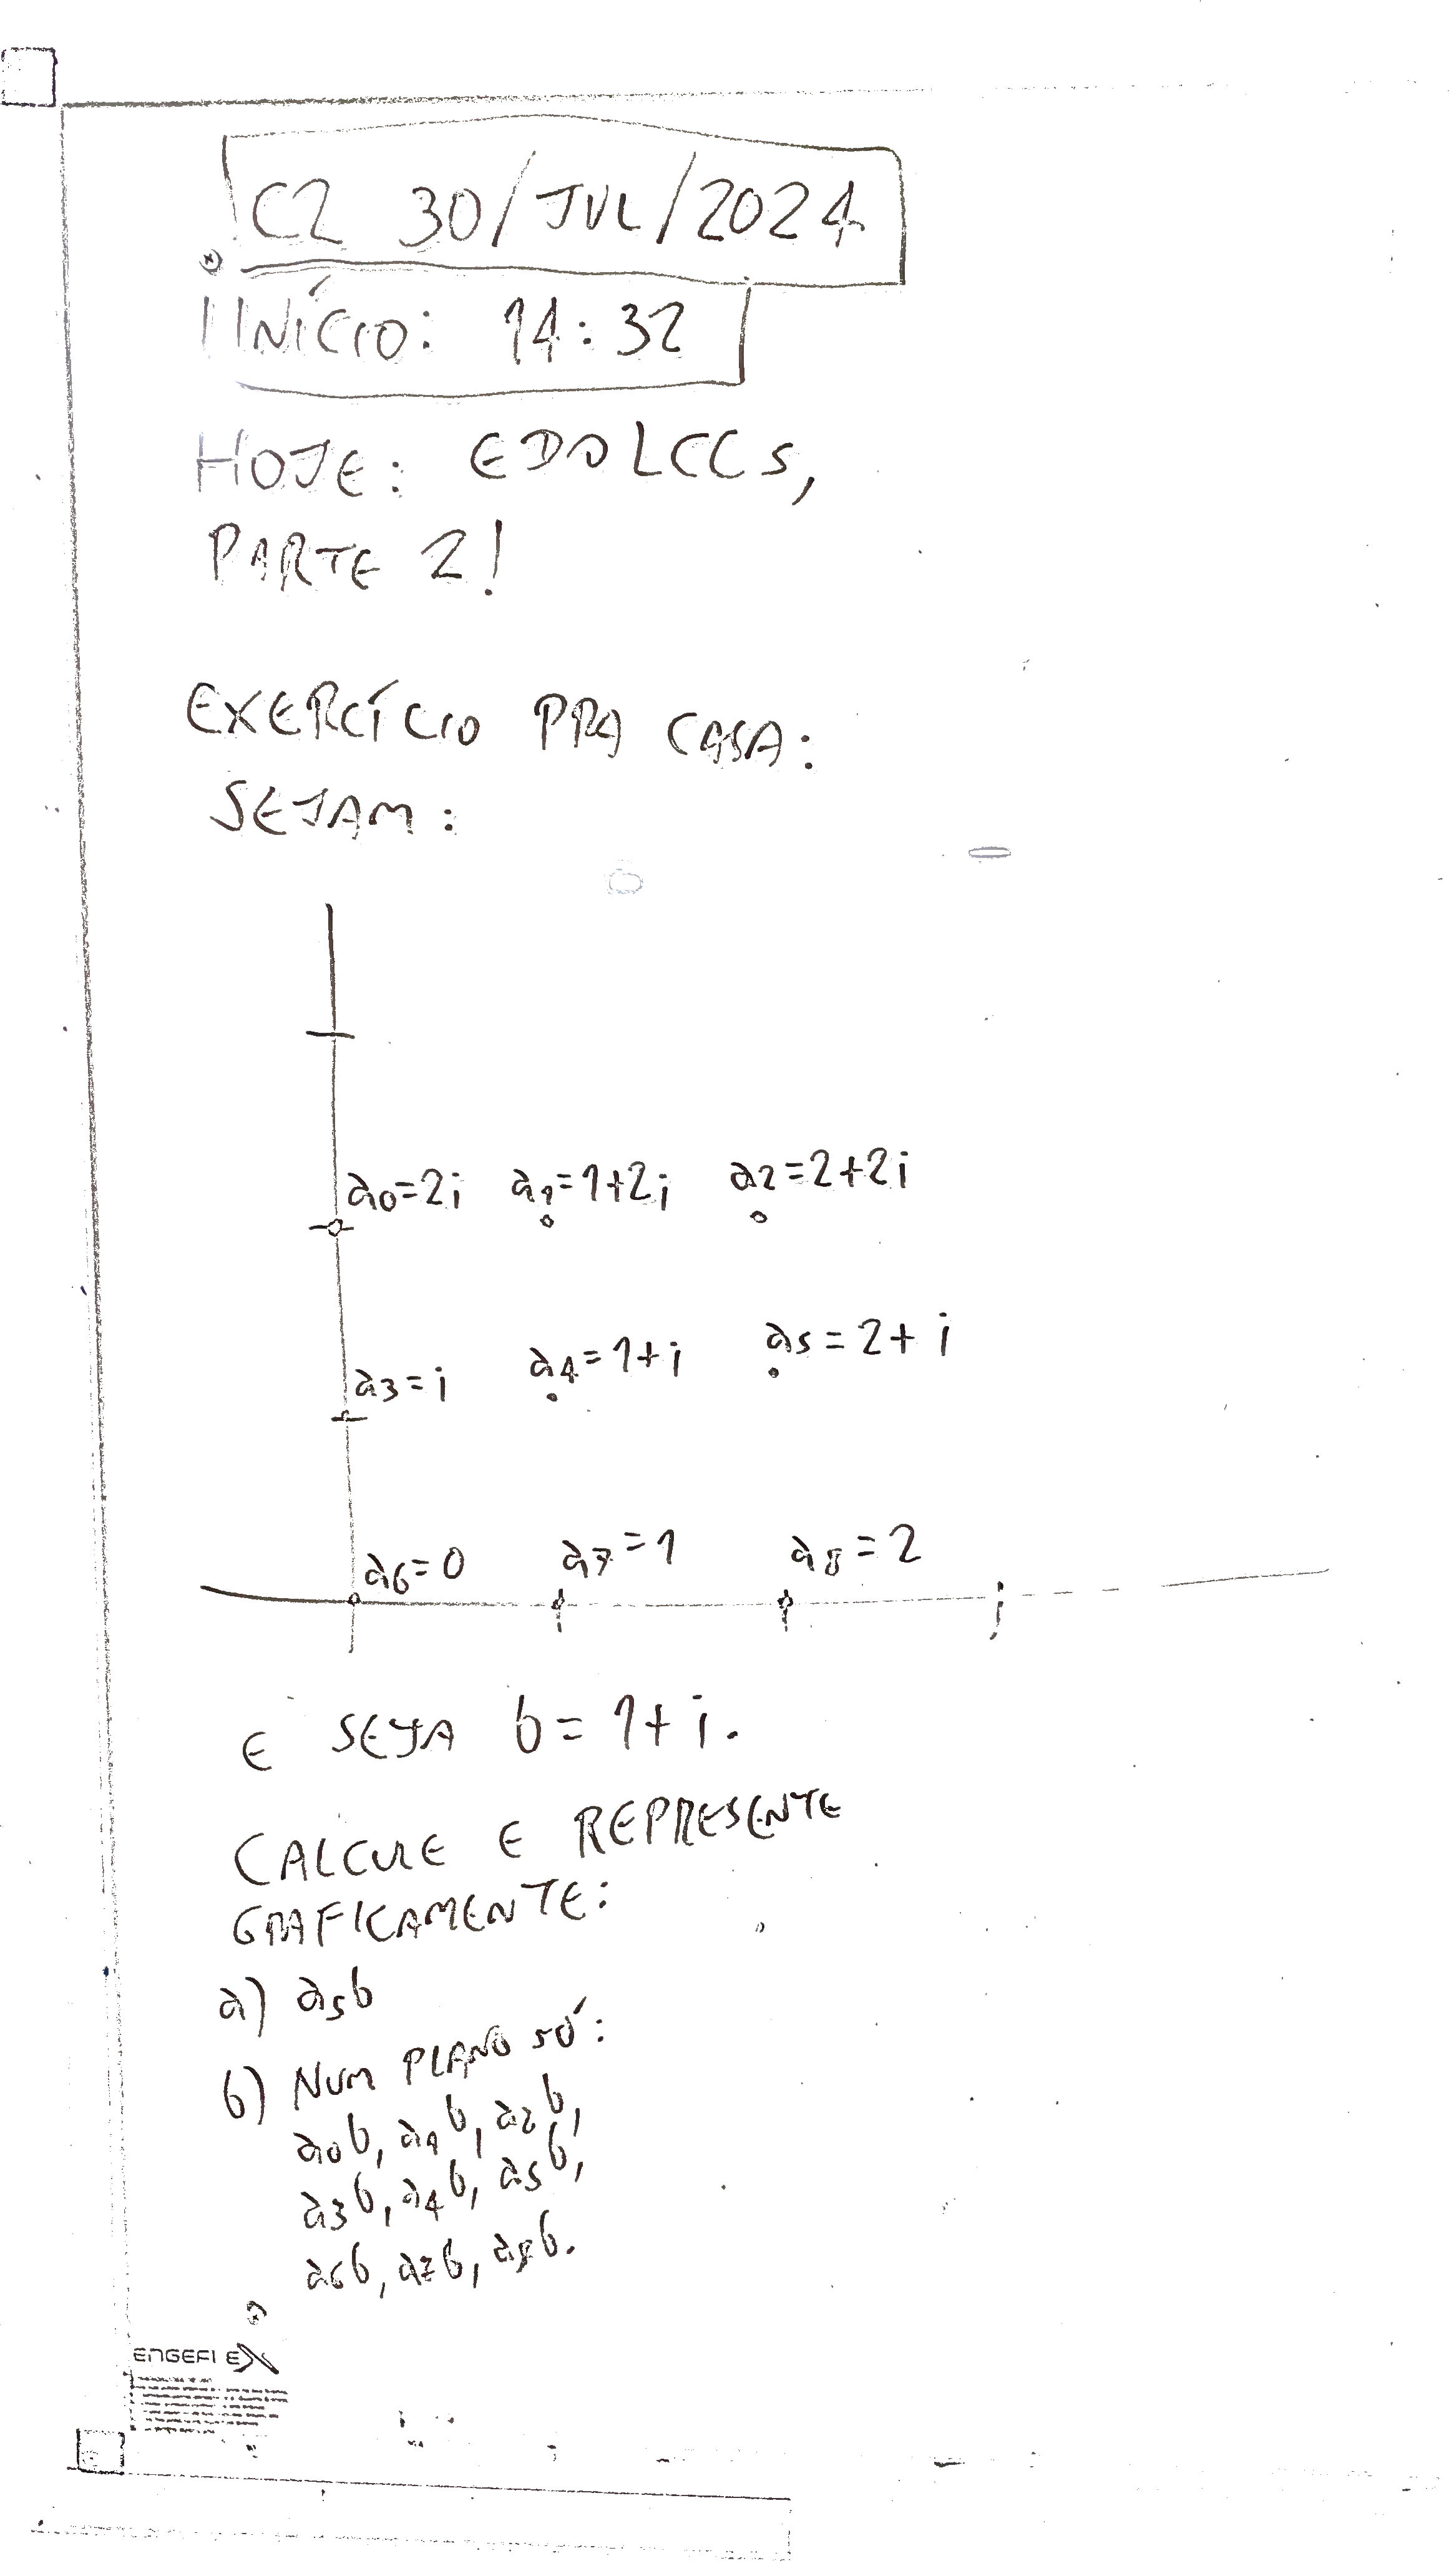 C2 30/JUL/2024
INÍCIO: 14:32
HOJE: EDOLCCs,
PARTE 2!
EXERCÍCIO PRA CASA:
SEJAM:
a0=2i a1=1+2i a2=2+2i
a3=i a4=1+i a5=2+i
a6=0 a7=1 a8=2
E SEJA b=1+i.
CALCULE E REPRESENTE
GRAFICAMENTE:
a) a5b
b) NUM PLANO SÓ:
a0b, a1b, a2b,
a3b, a4b, a5b,
a6b, a7b, a8b.
ENGEFLEX